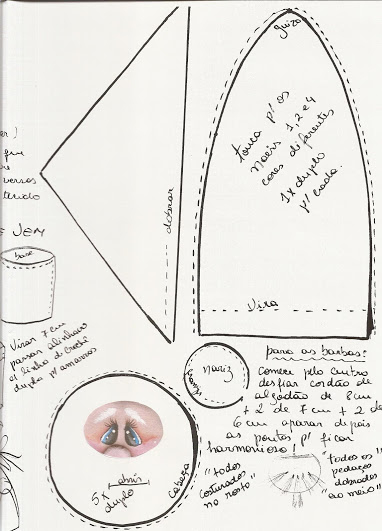 guizo
touca p' os
noéis 1,2 e 4
cores diferentes
1x duplo
p/ cada.
dobrar
Vira
er!
que
re
versos
tecido
E JEM
base
Virar 7 cm
passar alinhavo
c/ linha d. crochê
duplo p/ amarras
nariz
franzir
para as barbas:
comece pelo centro
desfiar cordão de
algodão de 8 cm
+ 2 de 7 cm + 2 de
6 cm aparar depois
as pontas p/ ficar
harmonioso!
"todos
costurados
no rosto"
"todos os
pedaços
dobrados
"ao meio"
abrir
5x
duplo
cabeça